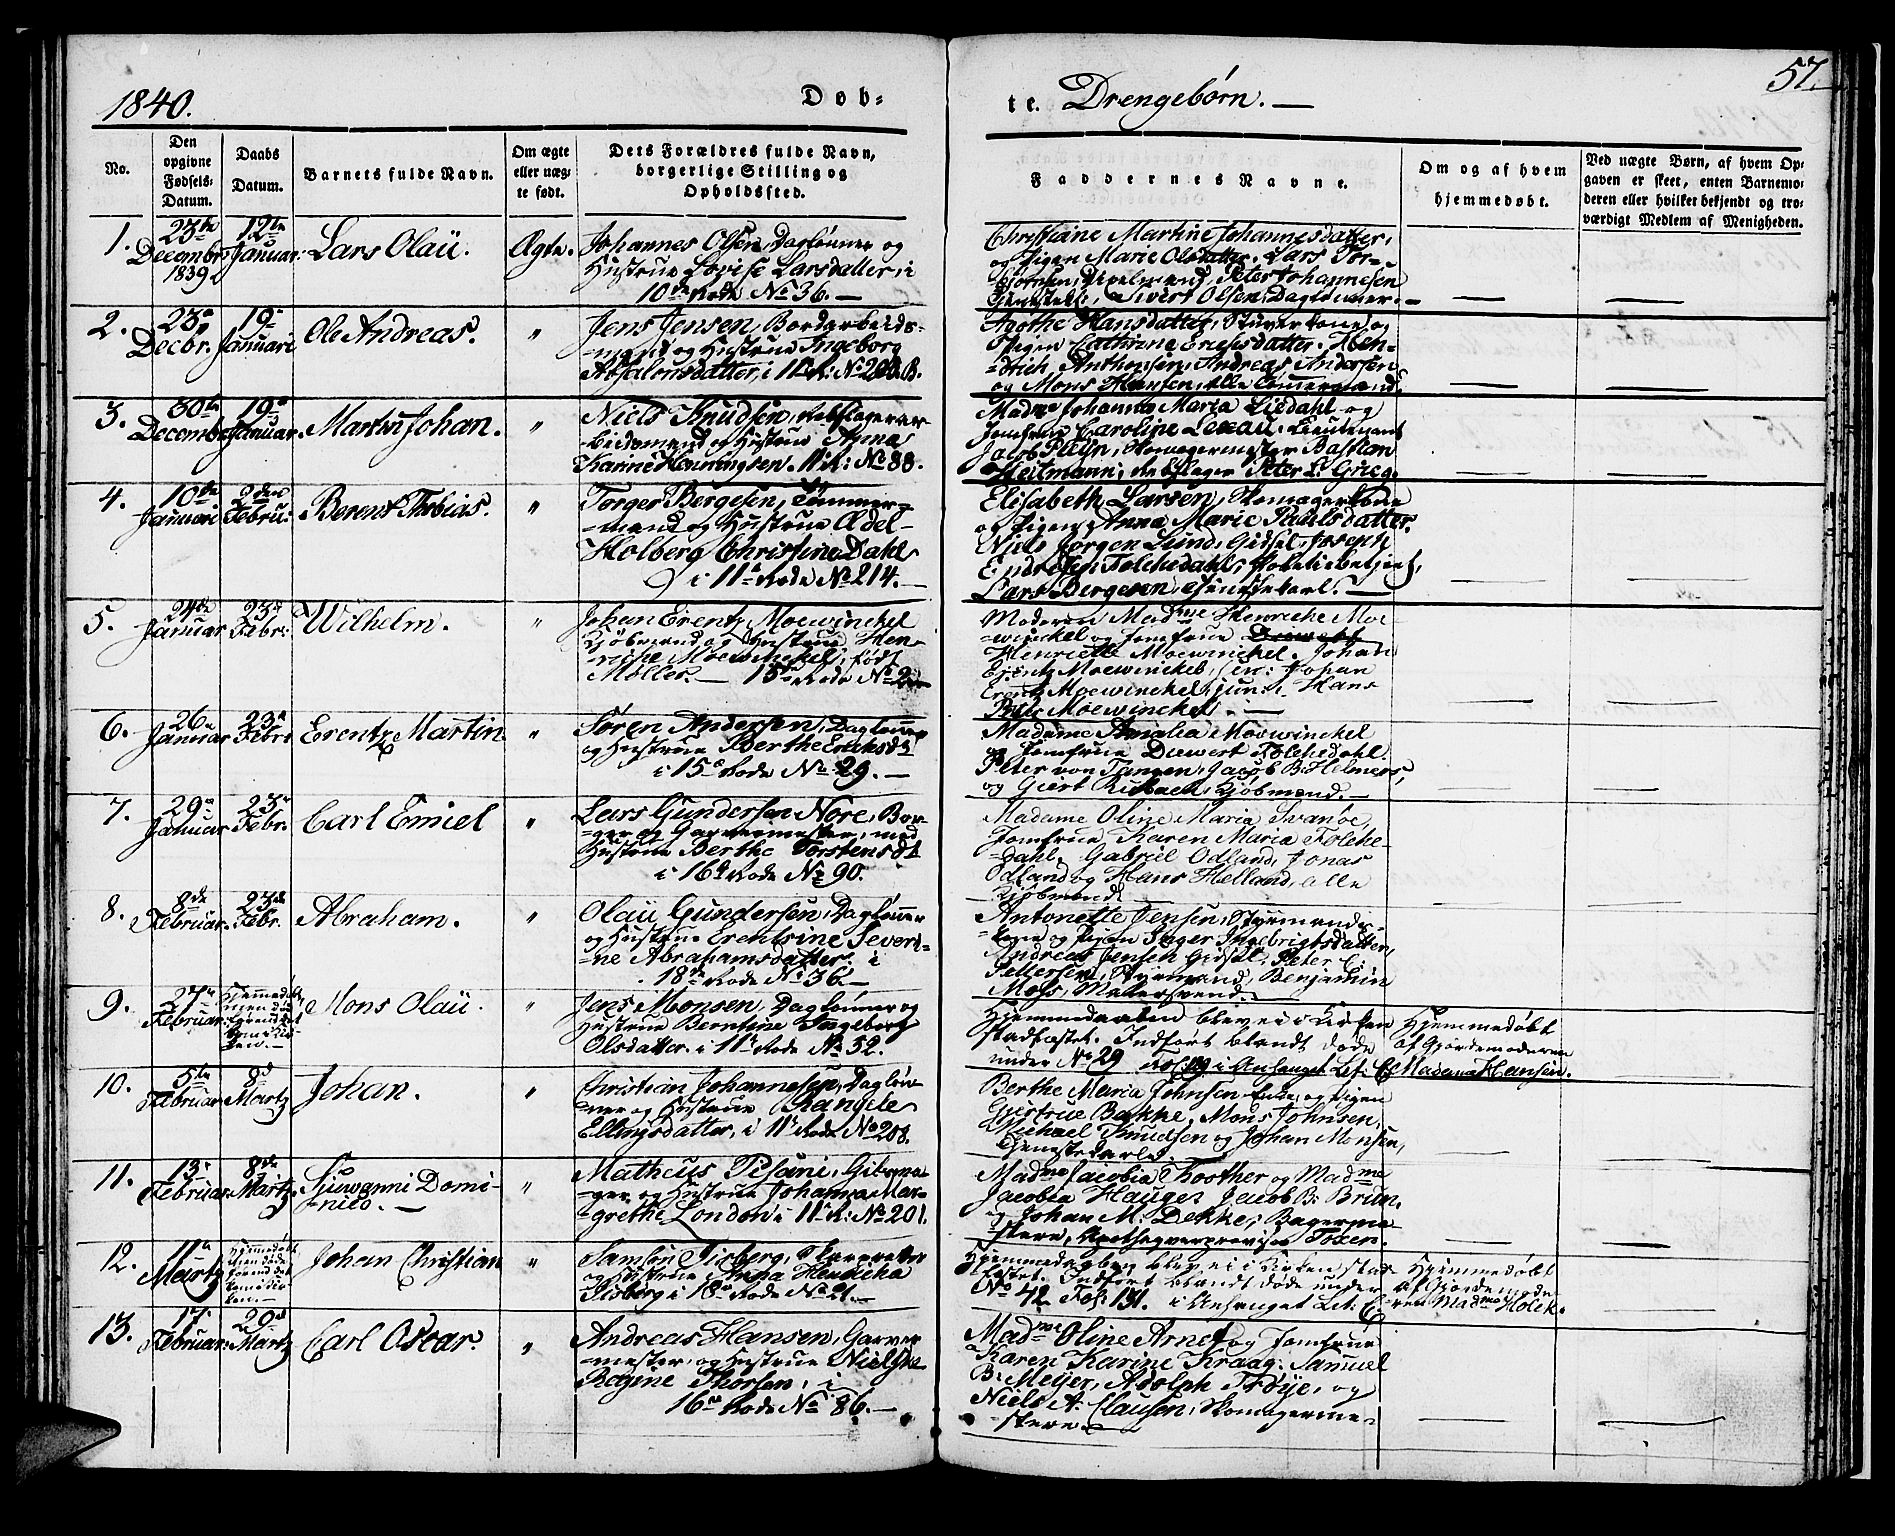 1840.
Døb-
te. Drengebørn. —
57.
No.
Den opgivne Fødsels-Datum.
Daabs Datum.
Barnets fulde Navn.
Om ægte eller uæg-te født.
Dets Forældres fulde Navn, borgerlige Stilling og Opholdssted.
Faddernes Navne.
Om og af hvem hjemmedøbt.
Ved uægte Børn, af hvem Op-gaven er skeet, enten Barnemo-deren eller hvilket bekjendt og tro-værdigt Medlem af Menigheden.
1. 23de Decembr 1839 12te Januar. Lars Olaü. Ægte.
Johannes Olsen, Daglønner og
Hustrue Lovise Larsdatter, i
10de Rode No 36. —
Christiane Martine Johannesdatter,
og Pigen Marie Olsdatter. Lars Tor-
Peter Johannesen
Sivert Olsen, Daglønner. —
2. Decbr. 19. Januari Ole Andreas. "
Jens Jensen, Bordarbeids-
mand og Hustrue Ingeborg
Absalonsdatter, i 11te R: No 208.B.
Agethe Hansdatter,
Pigen Cathrine Ericksdatter. Hen-
drich Anthonsen, Andreas Andersen
og Mons Hansen, alle
3. 30te Decembr 19. Januar. Martin Johan. "
Niels Knudsen, Rebslagerar-
beidsmand og Hustrue Anna
Kanne Henningsen. 11te R: No 88.
Madme Johanna Maria Liedahl og
Jomfrue Caroline Lexau. Lieutenant
Jacob Juüln, Skomagermester Bastian
Heitmann, Rebslager Peter L. Grieg.
4. 10de Januari 2den Febru: Berent Thobias. "
Torger Bergesen, Tømmer-
mand og Hustrue Edel
Holberg Christine Dahl
i 11te Rode No 214. —
Elisabeth Larsen, Skomagerkone
og Pigen Anna Marie Paulsdatter.
Niels Jørgen Lund, Gidsel, Joseph
Endresen Folckedahl, Politiebetjent,
Lars Bergesen, Tjenestekarl. —
5. 24de Januar 23de Febr: Wilhelm. "
Johan Erentz Moewinckel
Kjøbmand og Hustrue Hen-
riche Moewinckel, født
Møller. — 15de Rode No
Moderen, Madme Henriche Moe-
winckel og Jomfrue
Henriette Moewinckel. Johan
Erentz Moewinckel, sen: Johan
Erentz Moewinckel, jun: Hans
Moewinckel. —
6. 26. Januar 23. Febr: Erentz Martin "
Søren Andersen, Dagløner
og Hustrue Berthe Ericksdt
i 15. Rode No 29. —
Madame Amalia Moewinckel
og Jomfrue Diewert Folckedahl.
Peter von Tangen, Jacob B. Helmers,
og Giert Kjøbmænd. —
7. 29. Januar 23. Febr. Carl Emiel "
Lars Gundersen Nore, Bor-
ger og Garvermester, med
Hustrue Berthe Torstensdt
i 16de Rode No 90.
Madame Oline Maria Svanøe,
Jomfrue Karen Maria Folcke-
dahl. Gabriel Odland, Jonas
Odland og Hans Helland, alle
Kjøbmænd.
8. 8de Februar. 23de Febr. Abraham. "
Olaü Gundersen, Dagløner
og Hustrue Erentsine Severi-
ne Abrahamsdatter. i
18de Rode No 36. —
Antonette Jensen, Styrmands-
kone og Pigen Inger Ingebrigtsdatter,
Andreas Jensen Gidsel, Peter C.
Sellersen, Styrmand, Benjamin
Moss, Malersvend. —
9. 27de Februar. Hjemmedøbt, men døde forend det kom i Kir-ken. — Mons Olaü. "
Jens Monsen, Dagløner og
Hustrue Berntine Ingeborg
Olsdatter. i 11te Rode No 52.
Hjemmedaaben blev ei i Kirken
stadfæstet. Indført blandt døde
under No 29 Fol: i Anhanget Lit: C.
Hjemmedøbt
af Gjordemoderen
Madame Hansen.
10. 5te Februar 8d Martz Johan. "
Christian Johannesen, Dagløn-
ner og Hustrue Rangele
Ellingsdatter, i 11te Rode No 208.
Berthe Maria Johnsen Enke, og Pigen
Giertrue Bakke, Mons Johnsen,
Michael Knudsen og Johan Monsen,
Tjenestekarle.
11. 13. Februar 8de Martz. Sjiuvanni Domi-
nico. — "
Matheus Pisani, Gibsma-
ger og Hustrue Johanna Mar-
grethe London i 11te R: No 201.
Madme Jacobia Koother og Madme
Jacobia Hauger Jacob B. Brun,
og Johan M. Dekke, Bagerme-
stere, Apothequerprovisor Foxen.
12. 11. Martz Hjemmedøbt men døde forend det kom i Kir-ken. — Johan Christian "
Samson Risberg,
og Hustrue Anna Henricha
Risberg i 18. Rode No 21. —
Hjemmedaaben blev ei i Kirken stad-
fæstet. Indført blandt døde under
No 42 Fol: 131. i Anhanget Lit: C.
Hjemmedøbt
af Gjordemode-
ren Madme Holck.
13. 17. Februar: 29de Martz Carl Oscar. "
Andreas Hansen, Garver-
mester, og Hustrue Nielsine
Regine Thorsen, i
16de Rode No 86. —
Madme Oline Arnes og Jomfrue
Karen Karine Kraag. Samuel
B. Meyer, Adolph Trøye, og
Niels A. Clausen, Skomagerme-
stere.